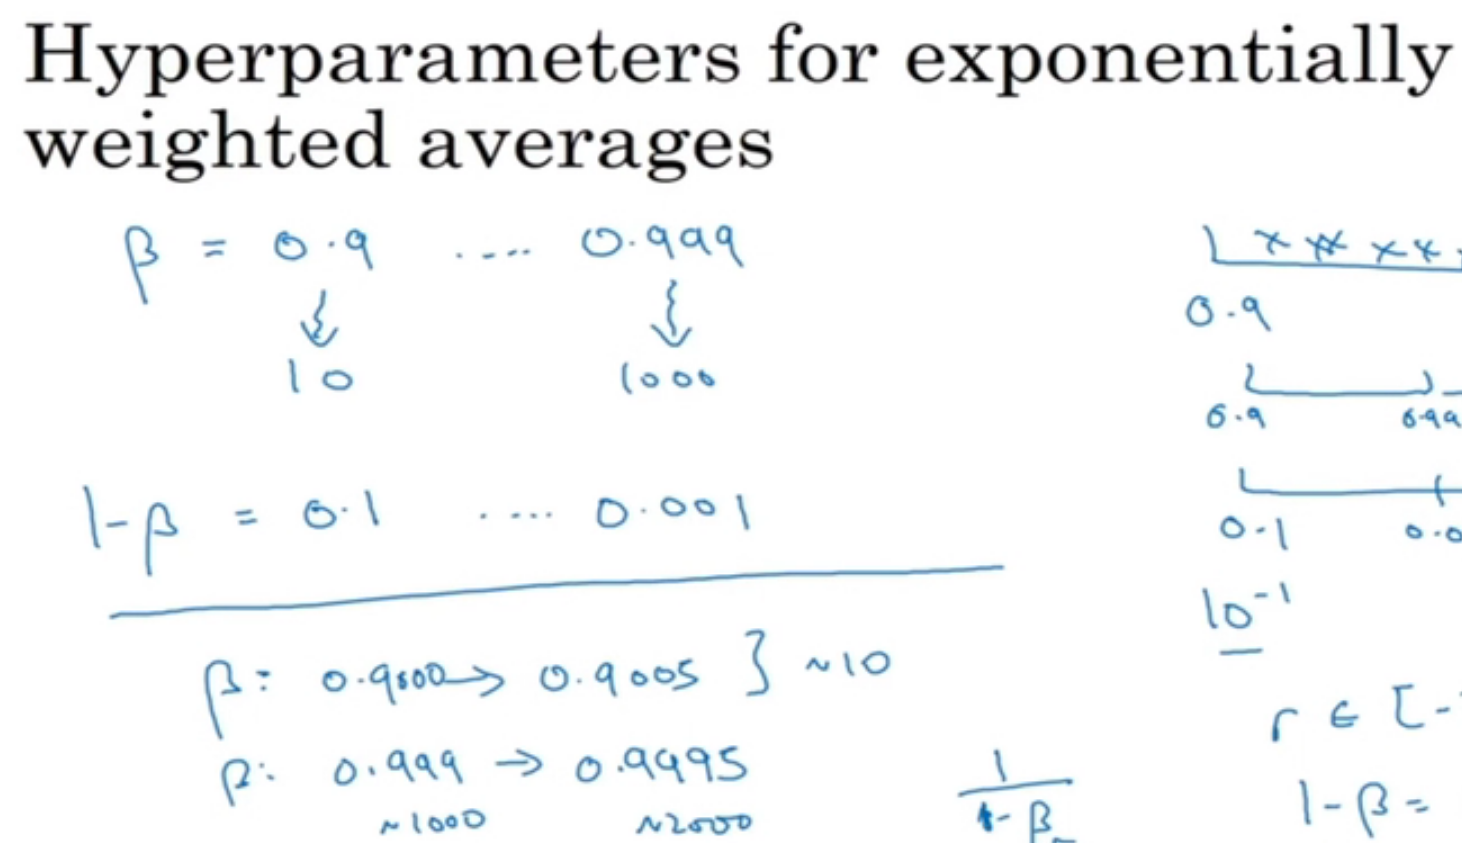 Hyperparameters for exponentially
weighted averages
β = 0.9 .... 0.999
10 1000
1-β = 0.1 .... 0.001
β: 0.9000 → 0.9005 } ~10
β: 0.999 → 0.9995
~1000 ~2000
1
1-β
0.9
0.9 0.99
0.1 0.0
10⁻¹
r ∈ [-
1-β =